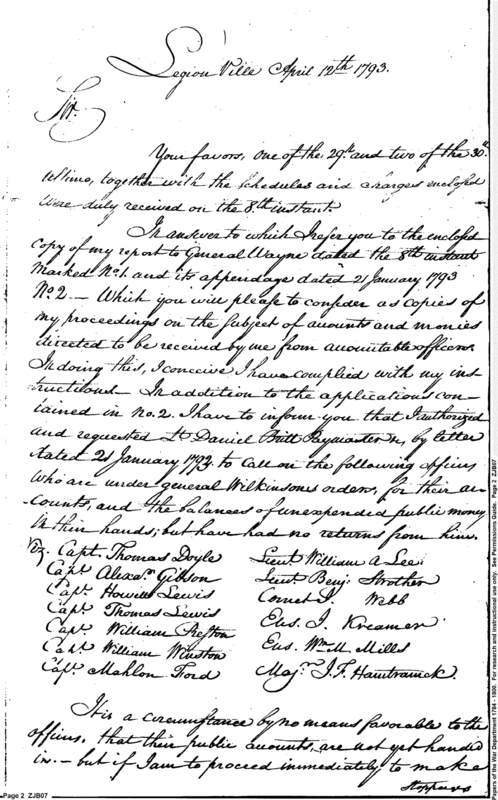 Legion Ville April 12th 1793.
Sir.
Your favors, one of the 29th and two of the 30th
Ultimo, together with the schedules and charges enclosed
were duly received on the 8th instant.
In answer to which I refer you to the enclosed
copy of my report to General Wayne dated the 8th instant
marked No. 1. and its appendage dated 21 January 1793
No. 2 — Which you will please to consider as copies of
my proceedings on the subject of accounts and monies
directed to be received by me from accountable officers.
In doing this, I conceive I have complied with my ins
tructions. In addition to the applications con-
tained in No. 2. I have to inform you that I authorized
and requested Lt Daniel Britt Paymaster &c, by letter
dated 21 January 1793. to call on the following officers
who are under general Wilkinsons orders, for their ac-
counts, and the balances of unexpended public money
in their hands; but have had no returns from him.
Viz. Capt. Thomas Doyle
Capt. Alexr. Gibson
Capt. Howell Lewis
Capt. Thomas Lewis
Capt. William Preston
Capt. William Winston
Capt. Mahlon Ford
Lieut William A Lee
Lieut Benj. Strother
Cornet Webb
Ens. J. Kreamer
Ens. Wm. M. Mills
Majr. J. F. Hamtramck.
It is a circumstance by no means favorable to the
officers, that their public accounts, are not yet handed
in. — but if I am to proceed immediately to make
stoppages
Page 2 ZJB07
Papers of the War Department 1784 - 1800. For research and instructional use only. See Permissions Guide. Page 2 ZJB07